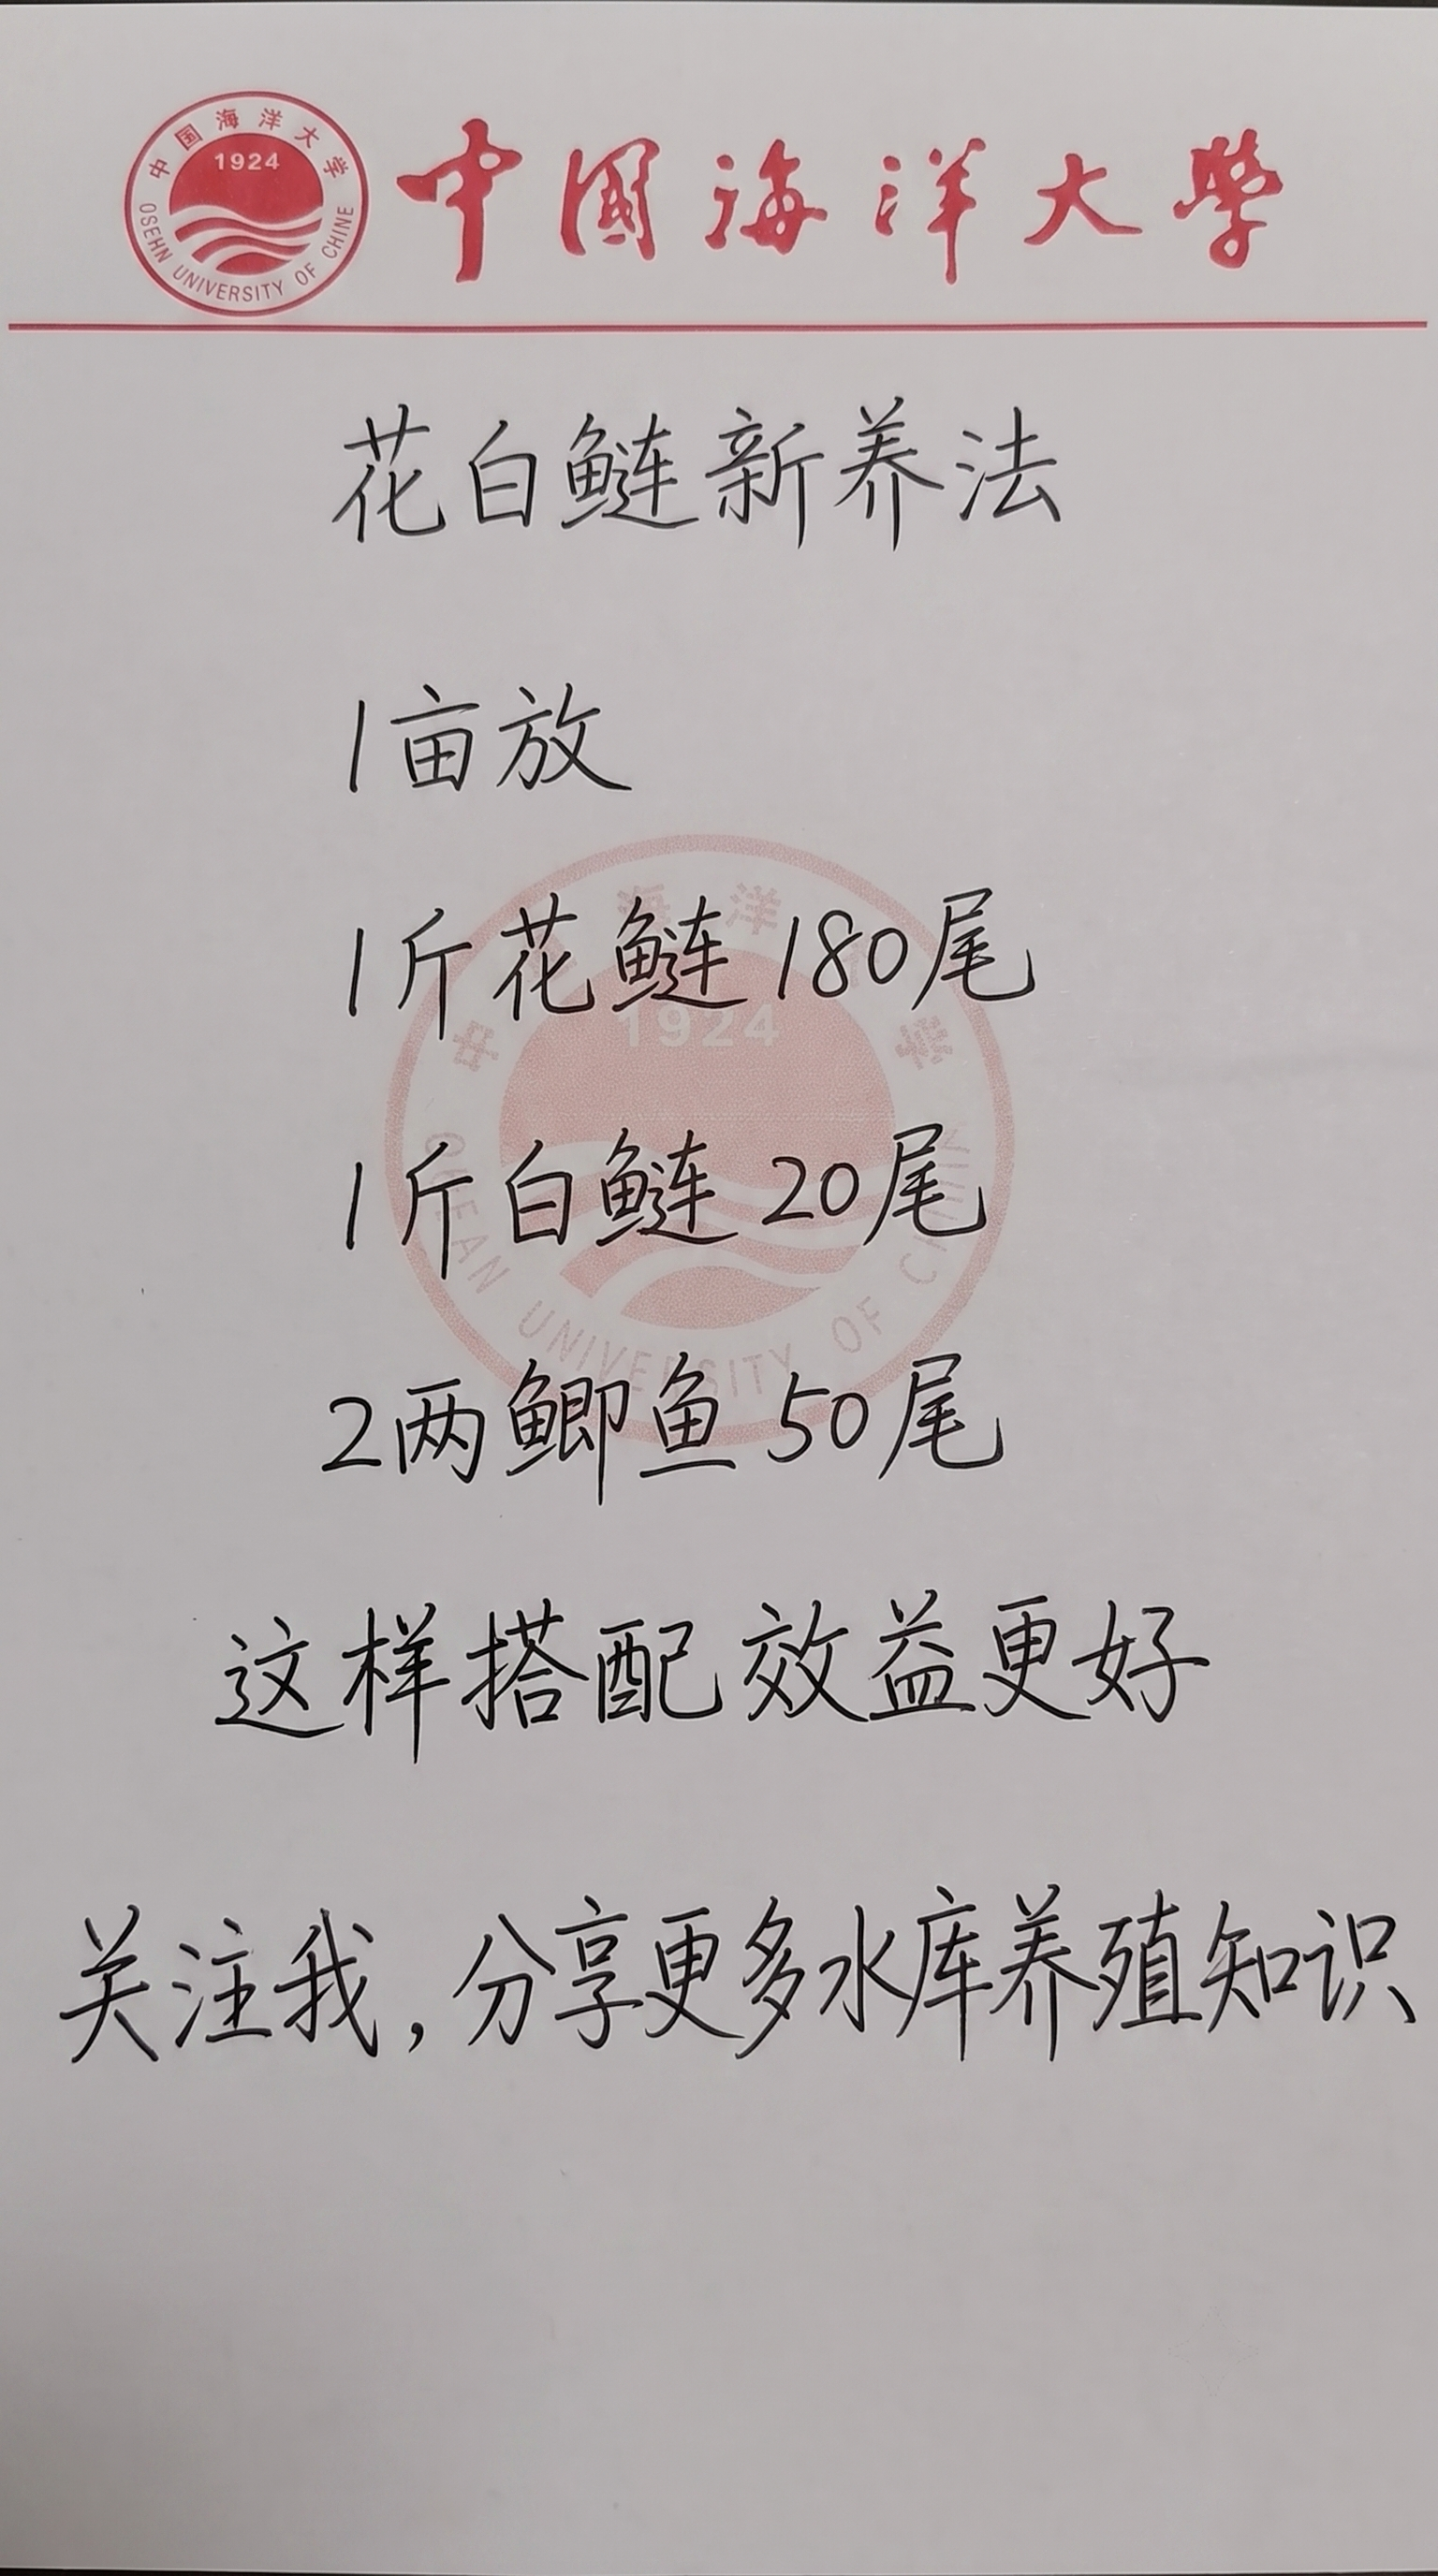 中国海洋大学
1924
OSEHN UNIVERSITY OF CHINE
中國海洋大學
花白鲢新养法
1亩放
1斤花鲢180尾
1斤白鲢20尾
2两鲫鱼50尾
这样搭配效益更好
关注我,分享更多水库养殖知识
海洋
中 学
1924
UNIVERSITY OF